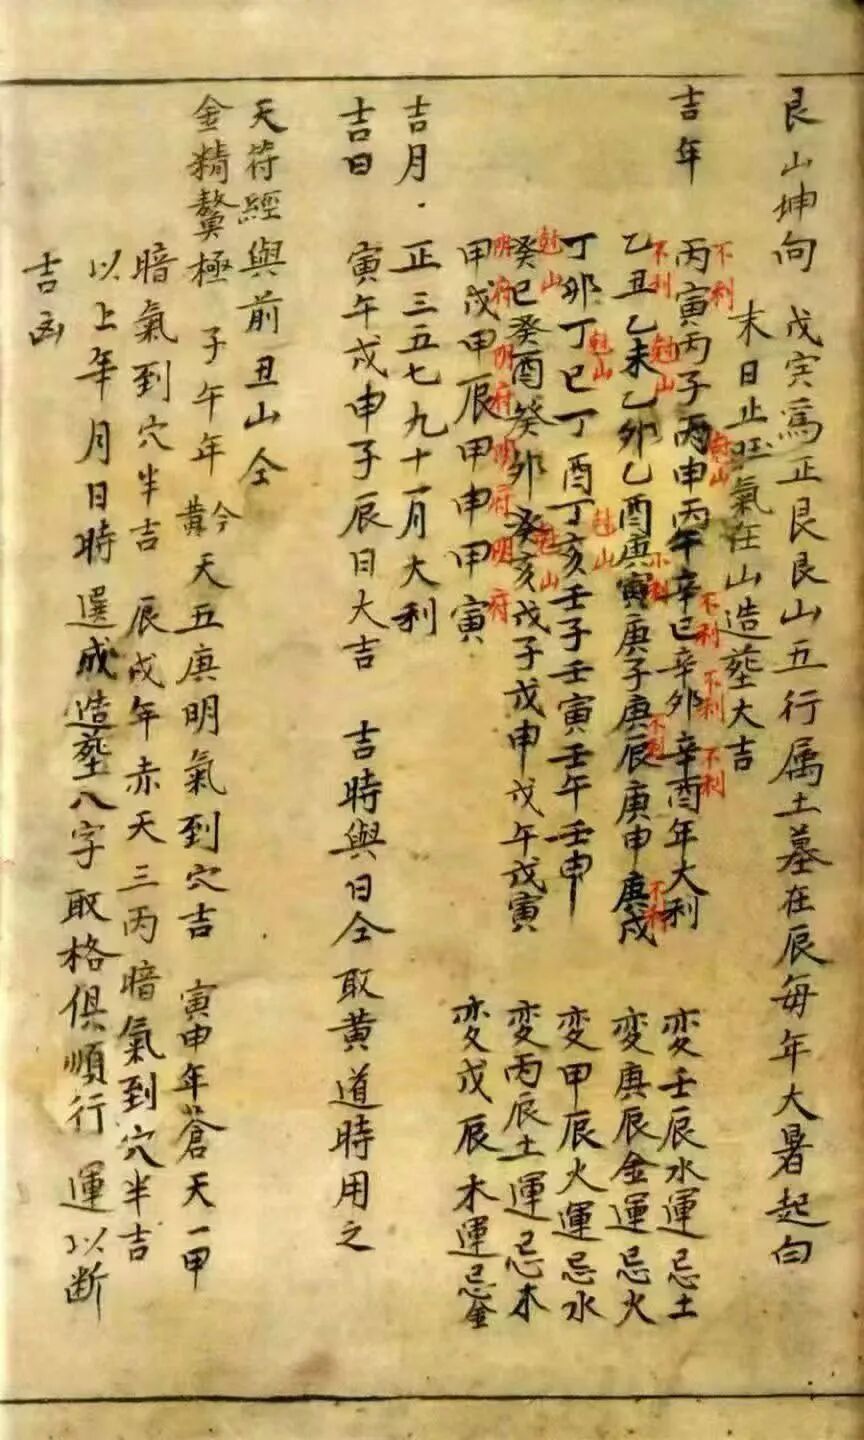 艮山坤向　戊寅爲正艮艮山五行属土墓在辰每年大暑起白
末日止旺氣在山造塟大吉
吉年
丙寅丙子丙申丙午辛巳辛卯辛酉年大利　変壬辰水運忌土
不利　尅山　不利　不利　不利
乙丑乙未乙卯乙酉庚寅庚子庚辰庚申庚戌　変庚辰金運忌火
不利　尅山　不利　不利　不利
丁卯丁巳丁酉丁亥壬子壬寅壬午壬申　変甲辰火運忌水
尅山　尅山
癸巳癸酉癸卯癸亥戊子戊申戊午戊寅　変丙辰土運忌木
尅山　尅山
甲戌甲辰甲申甲寅　変戊辰木運忌金
明府　明府　明府　明府
吉月．正三五七九十一月大利
吉日　寅午戌申子辰日大吉　吉時與日仝取黄道時用之
天符經與前丑山仝
金精鰲極　子午年黅天五庚明氣到穴吉　寅申年蒼天一甲
暗氣到穴半吉　辰戌年赤天三丙暗氣到穴半吉
以上年月日時選成造塟八字取格俱順行運以断
吉凶